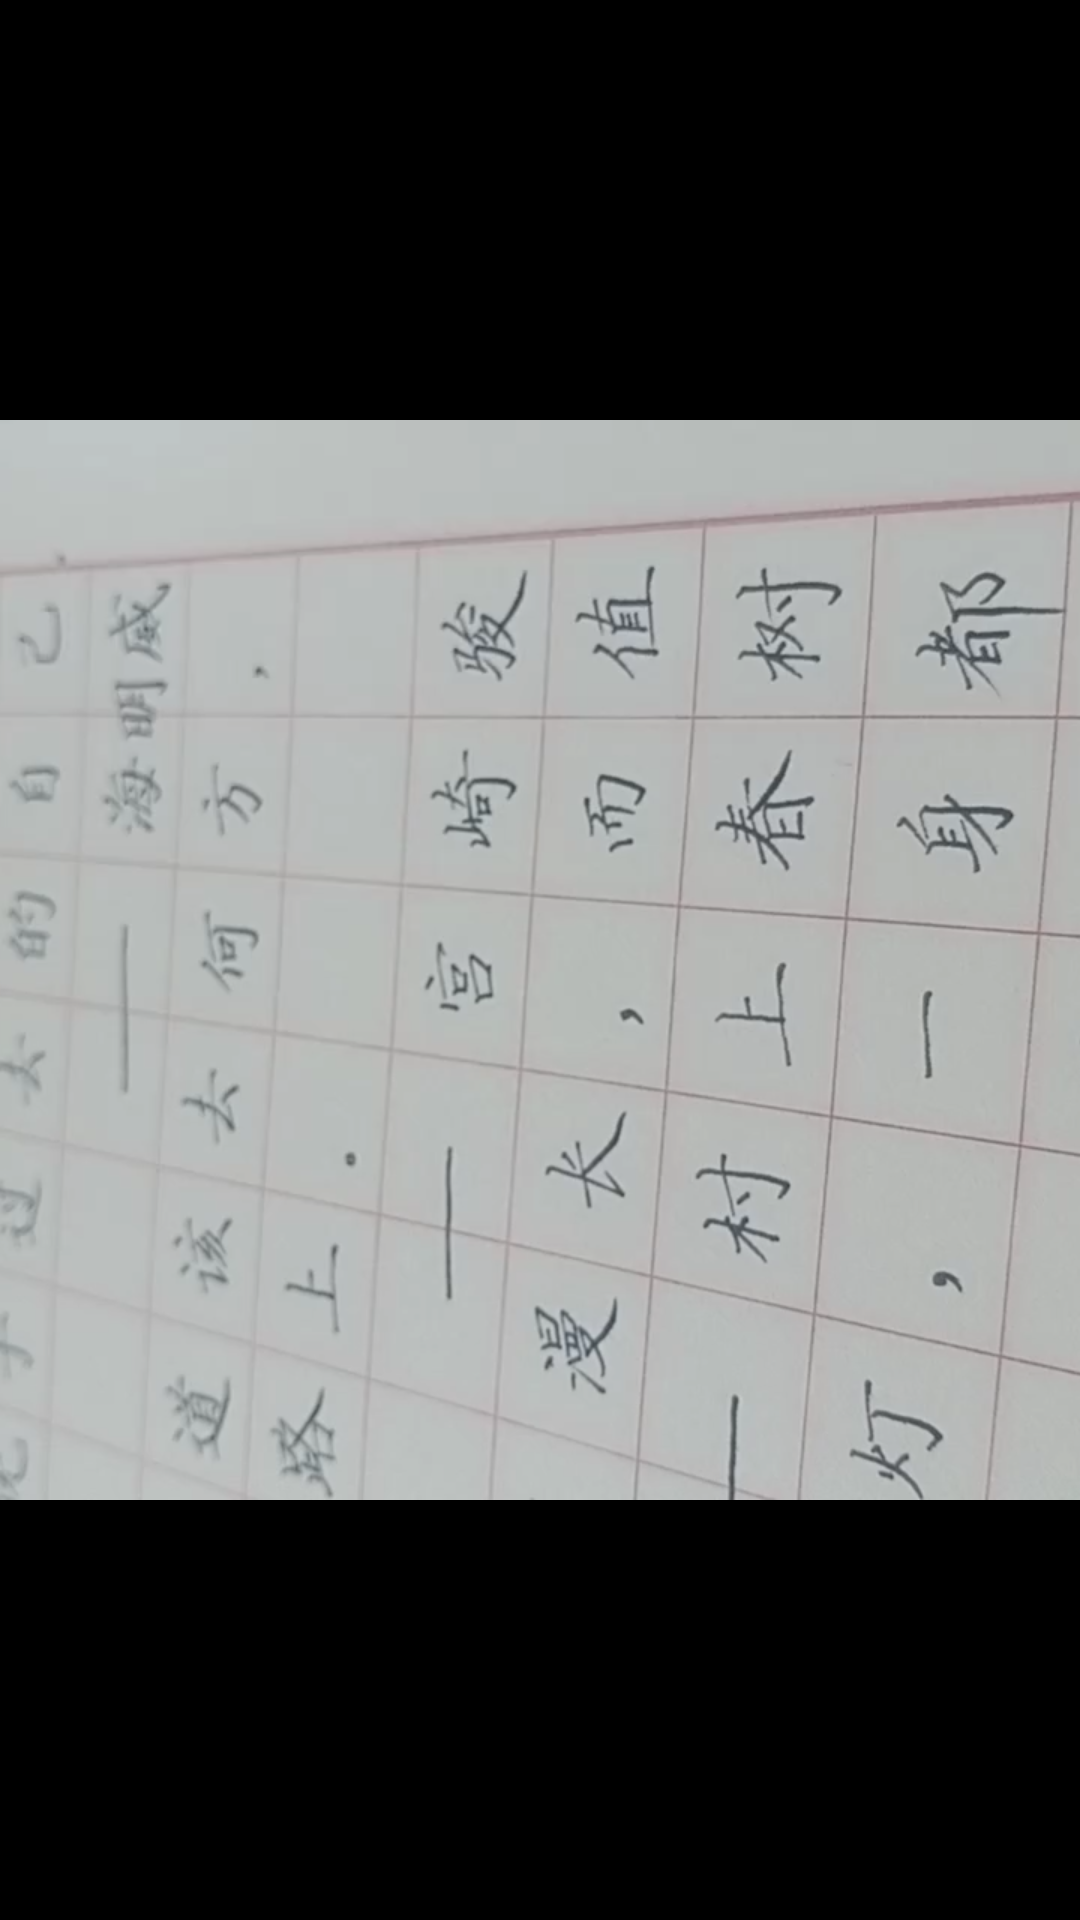 于过去的自己
——海明威
道该去何方，
路上。
——宫崎骏
漫长，而值
—村上春树
灯，一身都